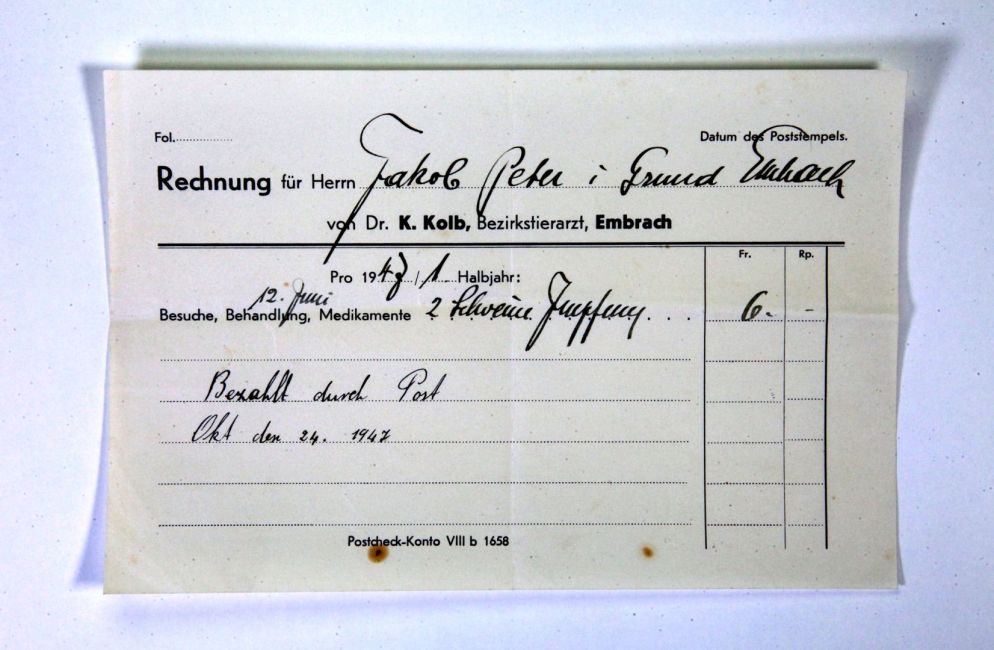 Fol.
Datum des Poststempels.
Rechnung für Herrn Jakob Peter i Grund Embrach
von Dr. K. Kolb, Bezirkstierarzt, Embrach
Fr. Rp.
Pro 1947/1 Halbjahr:
12. Juni
Besuche, Behandlung, Medikamente 2 Schweine Impfung . . . 6.- -
Bezahlt durch Post
Okt den 24. 1947
Postcheck-Konto VIII b 1658